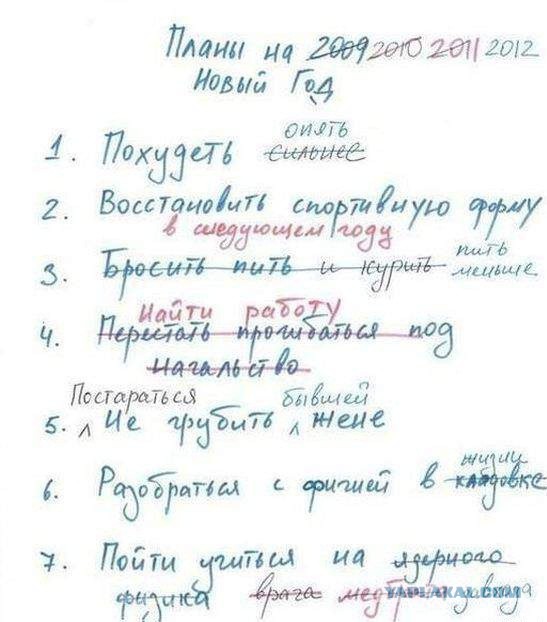 Планы на 2009 2010 2011 2012
Новый Год
опять
1. Похудеть сильнее
2. Восстановить спортивную форму
в следующем году
пить
3. Бросить пить и курить меньше
Найти работу
4. Перестать прогибаться под
начальство
Постараться бывшей
5. Не грубить жене
жизни
6. Разобраться с фигнёй в кладовке
7. Пойти учиться на ядерного
физика врача
YAPLAKAL.COM